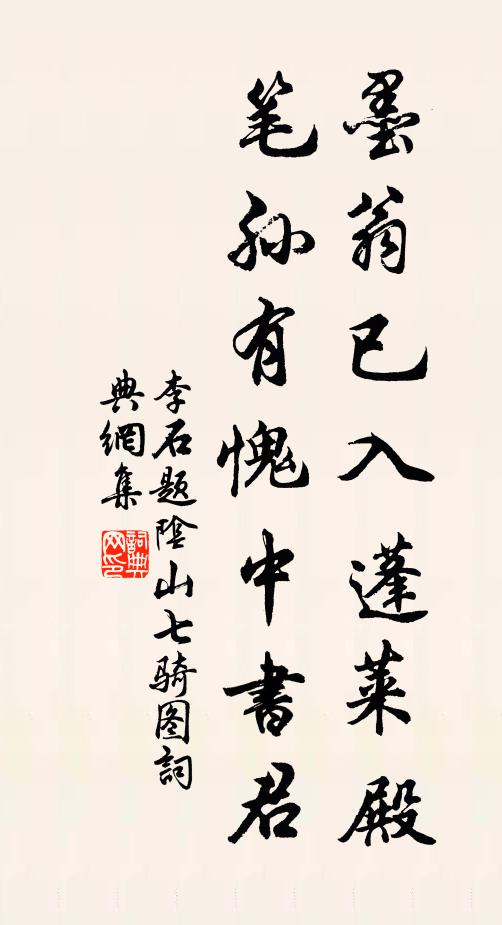 墨翁已入蓬莱殿
笔孙有愧中書君
李石题陰山七骑图詞
典網集
詞典网印